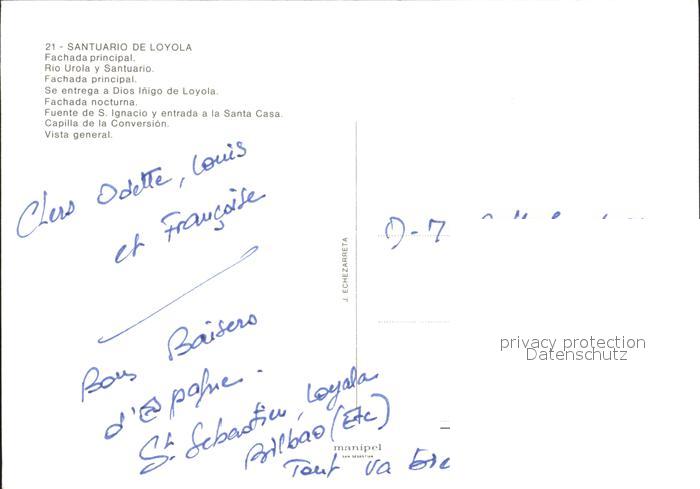 21 - SANTUARIO DE LOYOLA
Fachada principal.
Rio Urola y Santuario.
Fachada principal.
Se entrega a Dios Iñigo de Loyola.
Fachada nocturna.
Fuente de S. Ignacio y entrada a la Santa Casa.
Capilla de la Conversión.
Vista general.
Chers Odette, Louis
et Françoise
Bons Baisers
d'Espagne.
St. Sebastien, Loyala
Bilbao (Etc)
Tout va bie
J. ECHEZARRETA
manipel
SAN SEBASTIAN
D-7
privacy protection
Datenschutz